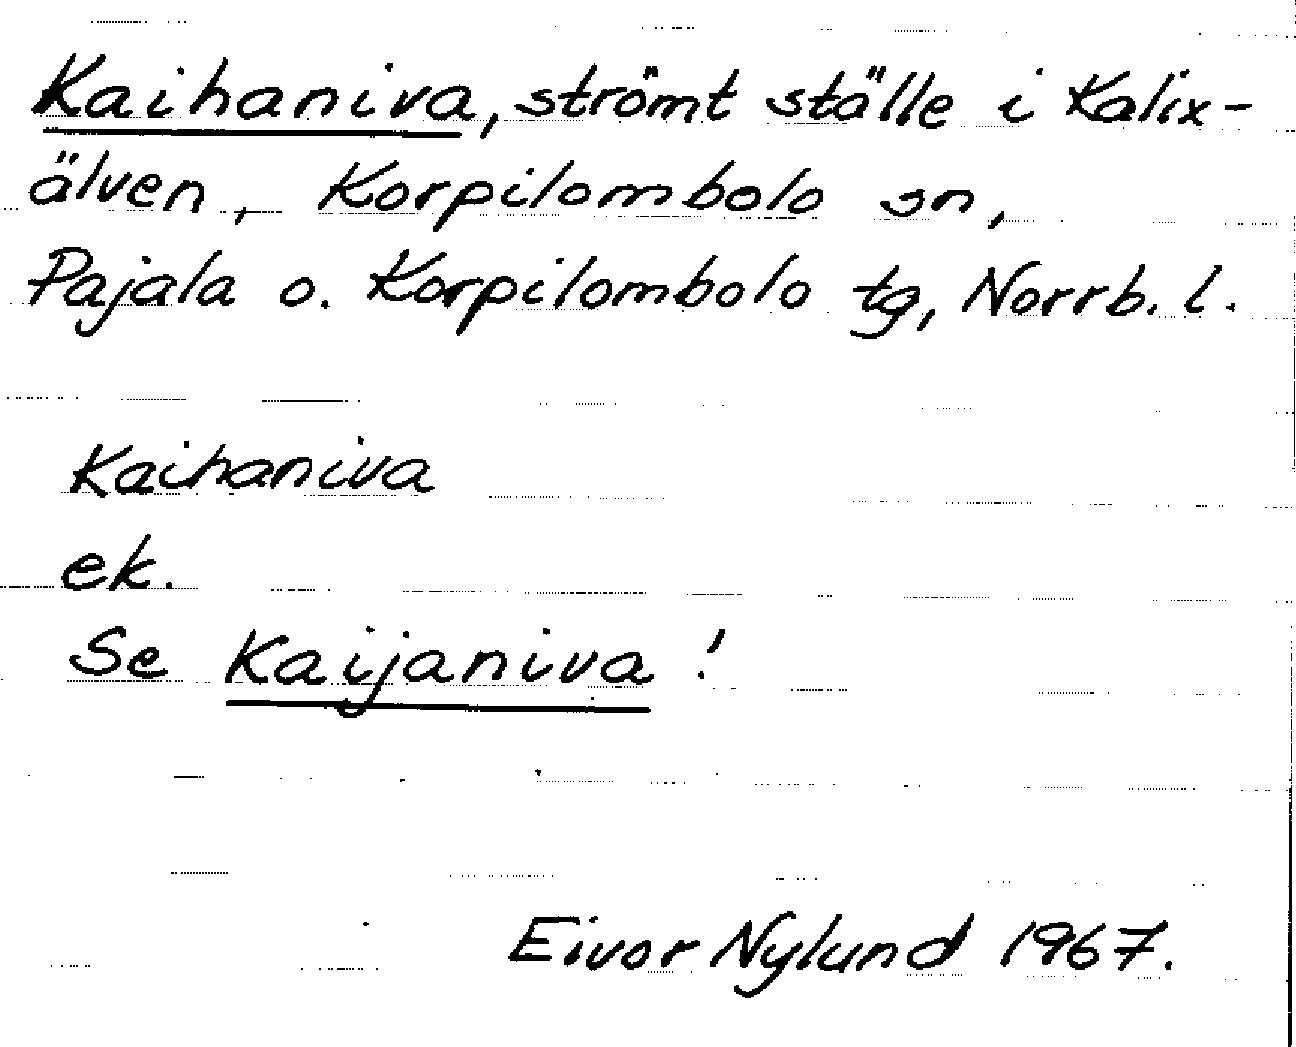 Kaihaniva, strömt ställe i Kalix-
älven, Korpilombolo sn,
Pajala o. Korpilombolo tg, Norrb. l.
Kaihaniva
ek.
Se Kaijaniva!
Eivor Nylund 1967.